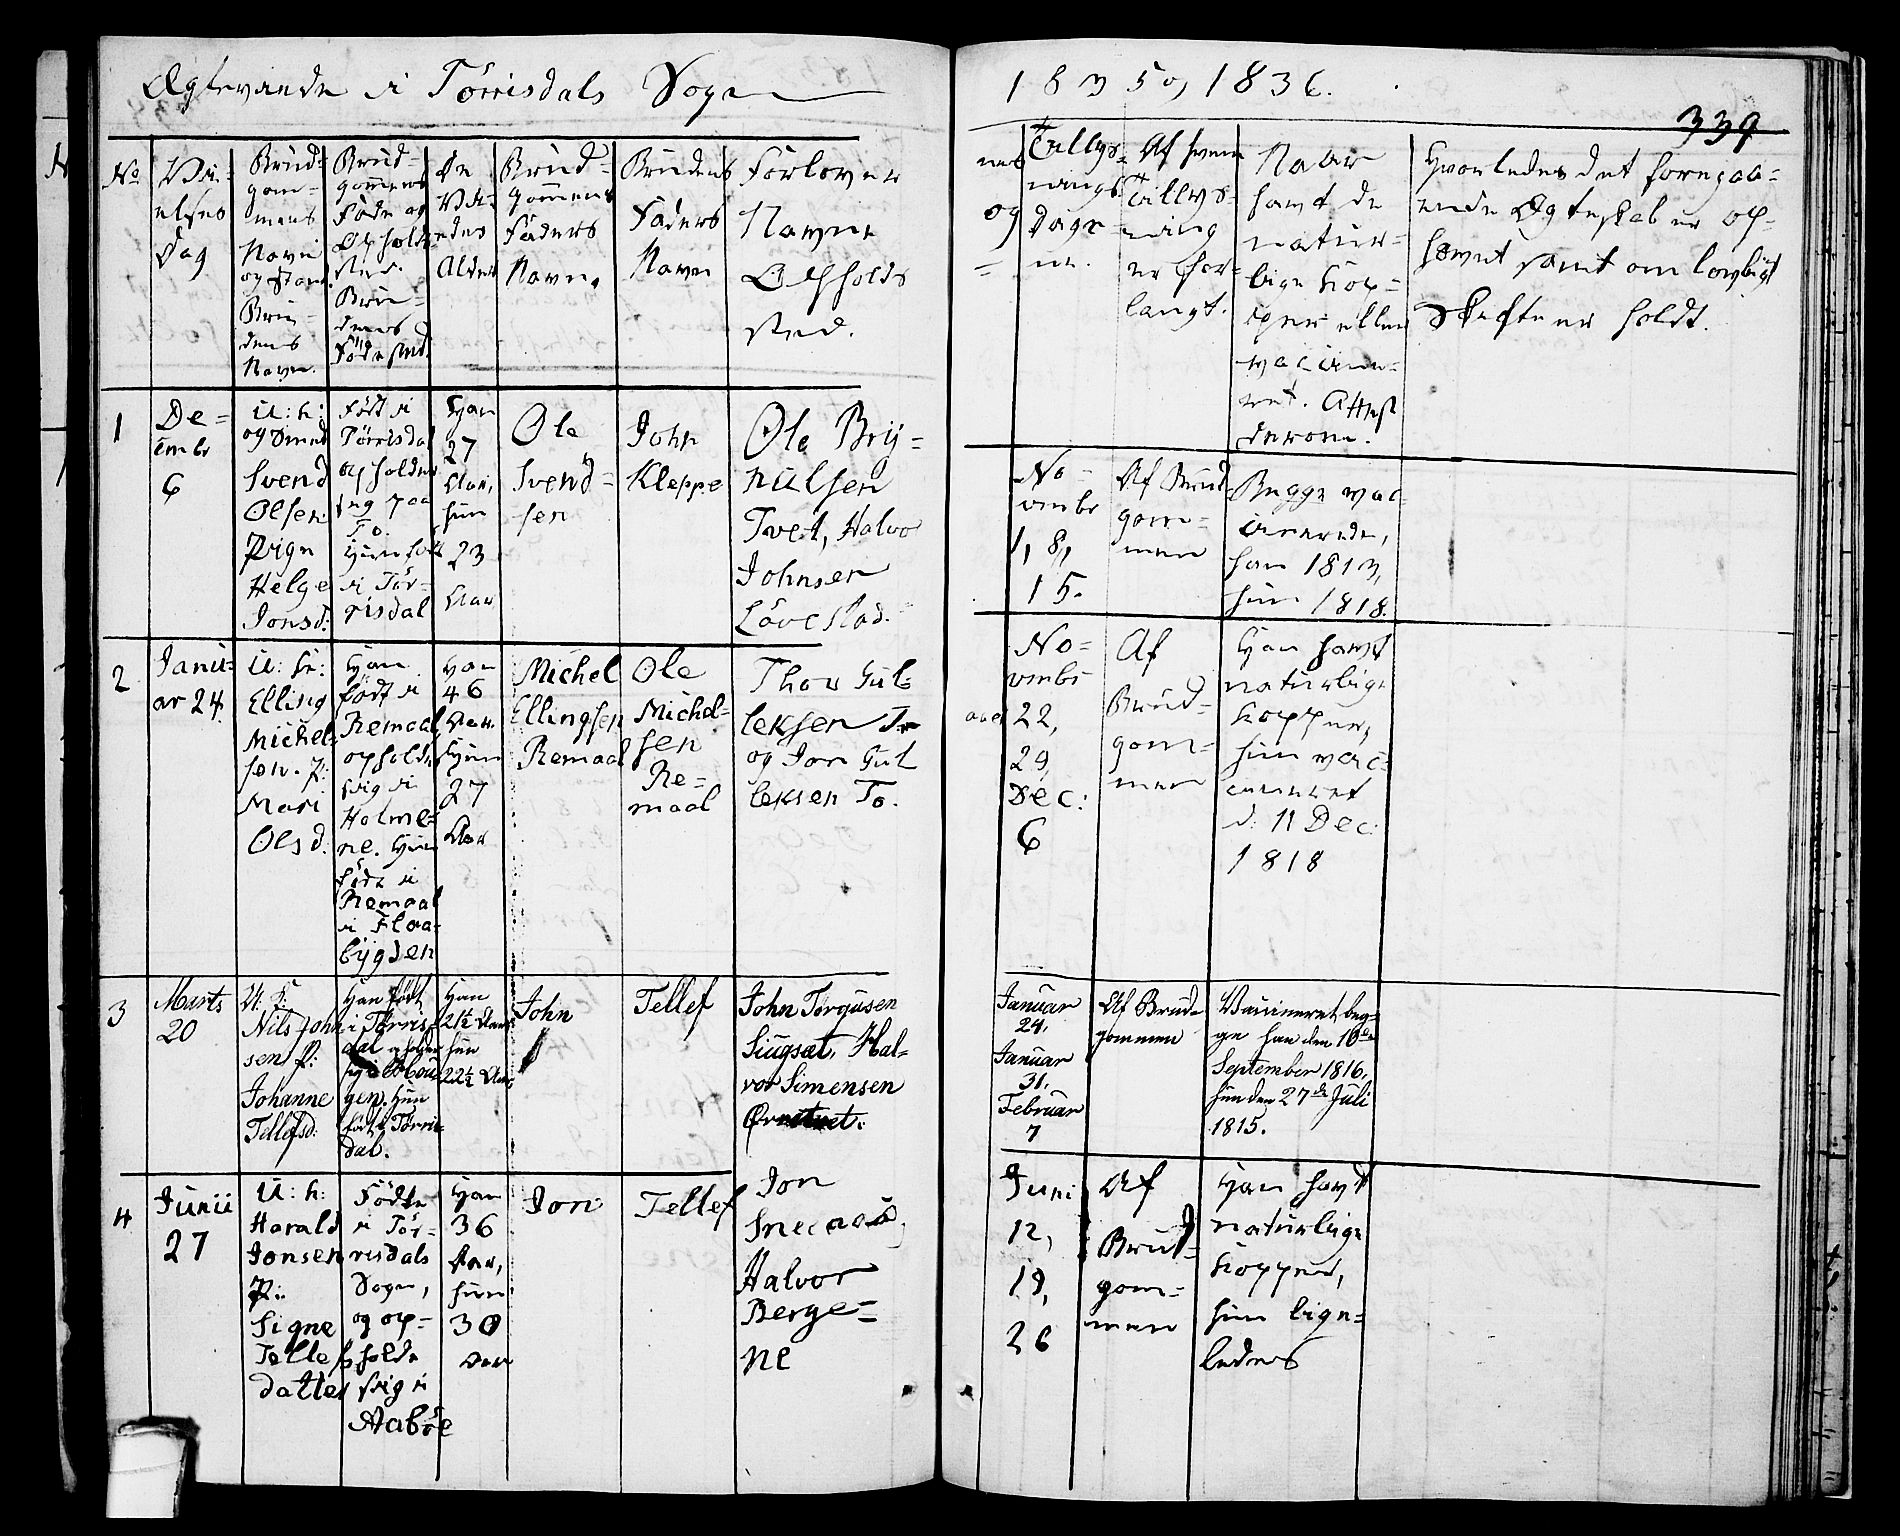 Ægteviede i Törrisdals Sogn
1835 og 1836.
339
No
Vi-
elses
Dag
Brud-
gom-
mens
Navn
og Stand.
Bru-
dens
Navn.
Brud-
gommens
Föde og
Opholds
Sted.
Bru-
dens
Födested.
De
Vi-
edes
Alder
Brud-
gommens
Faders
Navn.
Brudens
Faders
Navn
Forlover
Navne
Opholds
Sted.
nes
og
Tillys-
nings
Dage-
ne.
Af hvem
Tillys-
ning
er for-
langt.
Naar
havt de
natur-
lige Kop-
per eller
vaccine-
ret. Attest
derom.
Hvorledes det foregaa-
ende Ægteskab er op-
hævet samt om lovligt
Skifte er holdt.
1
De-
cembr
6
U: k:
og Smed
Svend
Olsen
Pige
Helge
Jonsd:
Födt i
Törrisdal
opholder
sig paa
To.
Hun født
i Tör-
risdal
Han
27
Aar,
hun
23
Aar
Ole
Svend-
sen
John
Kleppe
Ole Bry-
nulsen
Tvet, Halvor
Johnsen
Lövestad.
No-
vembr
1, 8,
15.
Af Brud
gom-
men
Begge vac-
cinerede,
han 1813,
hun 1818.
2
Janu-
ar 24.
U: k:
Elling
Michel-
sen. P:
Mari
Olsd:
Han
födt i
Remaal,
opholder
sig i
Holme-
ne. Hun
födt i
Remaal
i Flaa-
bygden
Han
46
Aar.
Hun
27
Aar
Michel
Ellingsen
Remaal
Ole
Michel-
sen
Re-
maal
Thov Gul-
leksen To
og Jon Gul
leksen To.
No-
vembr
22,
29,
Dec:
6
Af
Brud-
gom-
men
Han havt
naturlige
Kopper,
hun vac-
cineret
d: 11 Dec:
1818
3
Marts
20
U: k:
Nils John
sen P:
Johanne
Tellefsd:
Han födt
i Törris-
dal opholder
sig i
gen. Hun
födt i Törris-
dal.
Han
21½ Aar
hun
22½ Aar,
John
Tellef
John Torgusen
Siugsæt, Hal-
vor Simensen
Januar
24.
Januar
31.
Februar
7
Af Brud-
gommen
Vaccineret beg-
ge han den 10de
September 1816,
hun den 27de Juli
1815.
4
Junii
27
U: k:
Harald
Jonsen
P:
Signe
Tellefs
datter
Födte
i Tör-
risdals
Sogn,
og op-
holde
sig i
Aaböe
Han
36
Aar,
hun
30
Aar
Jon
Tellef
Jon
Halvor
Berge-
ne
Juni
12,
19,
26
Af
Brud-
gom-
men
Han havt
naturlige
Kopper,
hun lige-
ledes